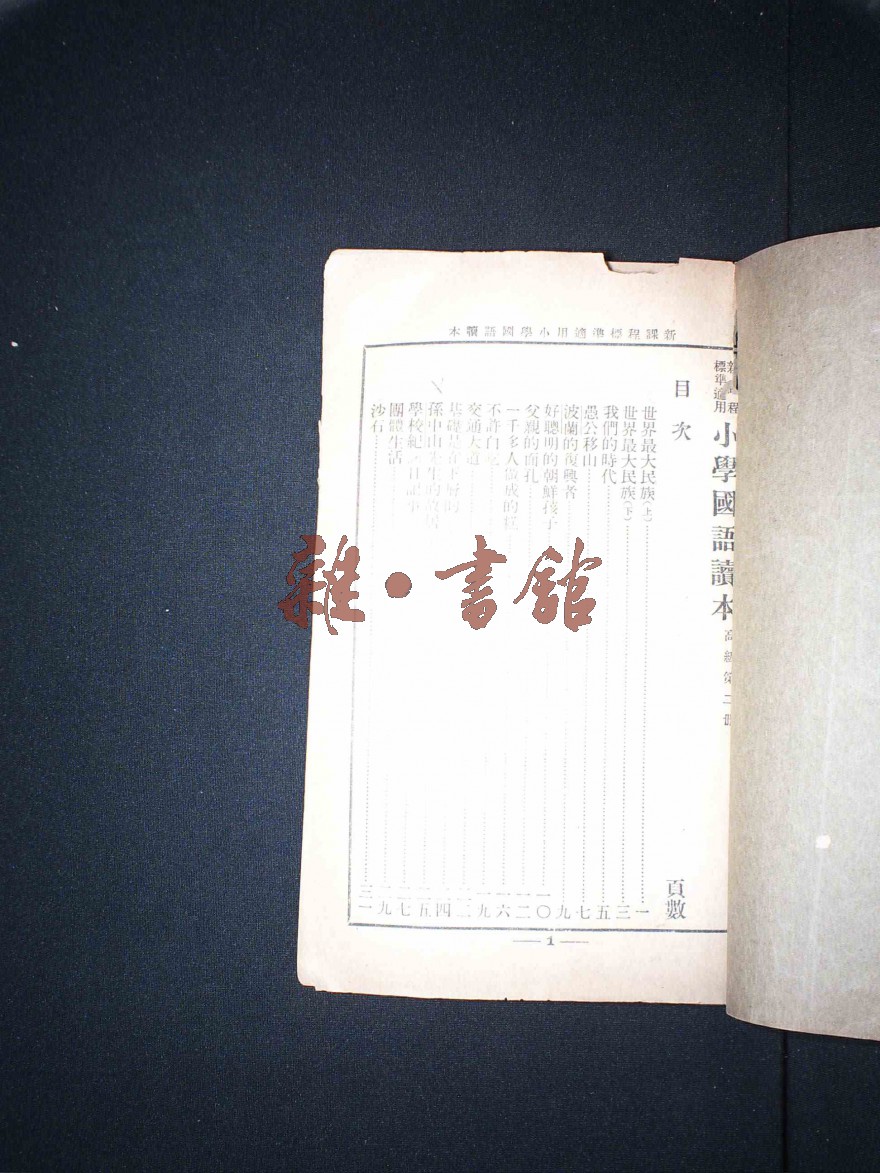 新課程標準適用小學國語讀本
新課程
標準適用
小學國語讀本
高級第二冊
目次
頁數
世界最大民族(上)……一
世界最大民族(下)……三
我們的時代……五
愚公移山……七
波蘭的復興者……九
好聰明的朝鮮孩子……一〇
父親的面孔……一二
一千多人做成的……一六
不許……一九
交通大道……二二
基礎是在下層的……二四
孫中山先生的故居……二五
學校紀……二七
團體生活……二九
沙石……三一
1
雜·書館